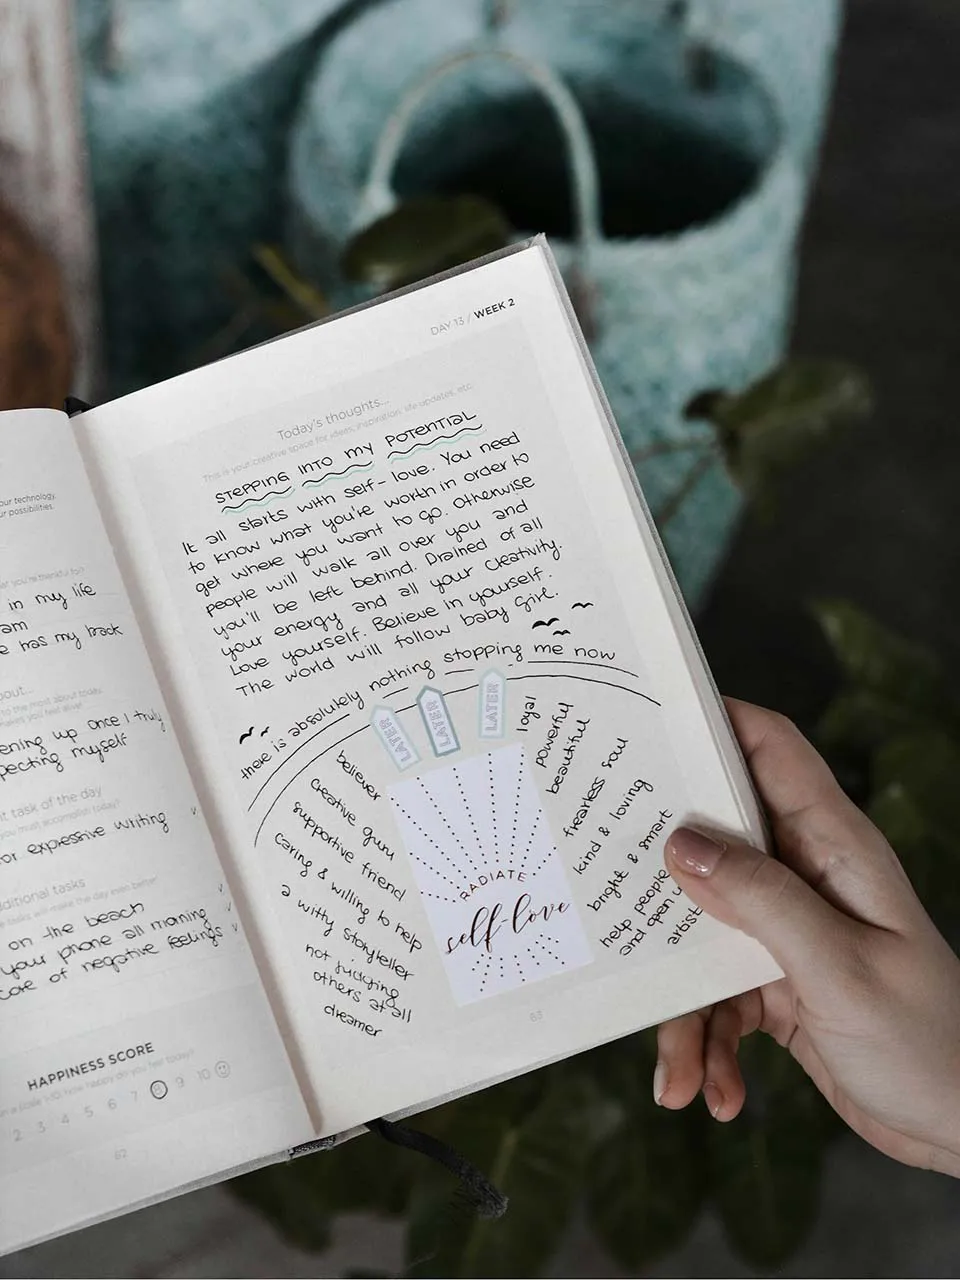 our technology,
ur possibilities.
you're thankful for?
in my life
am
e has my back
bout...
to the most about today.
makes you feel alive!
ening up once I truly
pecting myself
t task of the day
you must accomplish today?
or expressive writing
ditional tasks
tasks will make the day even better
on the beach
your phone all morning
care of negative feelings
HAPPINESS SCORE
how happy do you feel today?
2 3 4 5 6 7 8 9 10
62
DAY 13 / WEEK 2
Today's thoughts...
This is your creative space for ideas, inspiration, life updates, etc.
STEPPING INTO MY POTENTIAL
It all starts with self-love. You need
to know what you're worth in order to
get where you want to go. Otherwise
people will walk all over you and
you'll be left behind. Drained of all
your energy and all your creativity.
Love yourself. Believe in yourself.
The world will follow baby girl.
there is absolutely nothing stopping me now
LATER
LATER
LATER
believer
creative guru
supportive friend
caring & willing to help
a witty storyteller
not judging
others at all
dreamer
RADIATE
self-love
loyal
powerful
beautiful
fearless soul
kind & loving
bright & smart
help people
and open u
artist
63